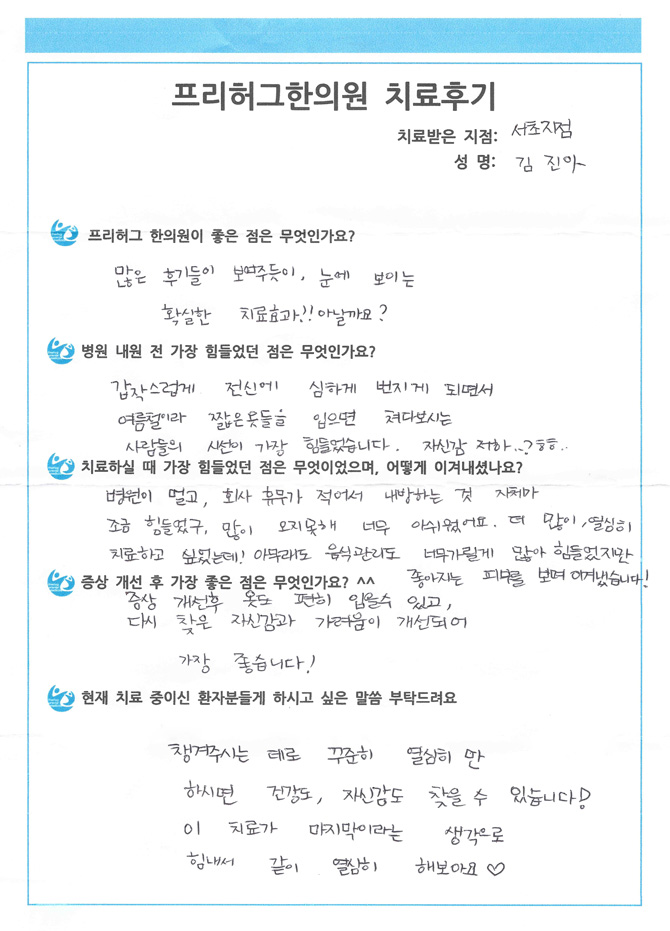 프리허그한의원 치료후기
치료받은 지점: 서초지점
성 명: 김 진아
프리허그 한의원이 좋은 점은 무엇인가요?
많은 후기들이 보여주듯이, 눈에 보이는
확실한 치료효과!! 아닐까요?
병원 내원 전 가장 힘들었던 점은 무엇인가요?
갑작스럽게 전신에 심하게 번지게 되면서
여름철이라 짧은옷들을 입으면 쳐다보시는
사람들의 시선이 가장 힘들었습니다. 자신감 저하..? ㅎㅎ..
치료하실 때 가장 힘들었던 점은 무엇이었으며, 어떻게 이겨내셨나요?
병원이 멀고, 회사 휴무가 적어서 내방하는 것 자체가
조금 힘들었구, 많이 오지못해 너무 아쉬웠어요. 더 많이, 열심히
치료하고 싶었는데! 아무래도 음식관리도 너무가릴게 많아 힘들었지만
좋아지는 피부를 보며 이겨냈습니다!
증상 개선 후 가장 좋은 점은 무엇인가요? ^^
증상 개선후 옷도 편히 입을수 있고,
다시 찾은 자신감과 가려움이 개선되어
가장 좋습니다!
현재 치료 중이신 환자분들게 하시고 싶은 말씀 부탁드려요
챙겨주시는 데로 꾸준히 열심히 만
하시면 건강도, 자신감도 찾을 수 있습니다!
이 치료가 마지막이라는 생각으로
힘내서 같이 열심히 해보아요♡